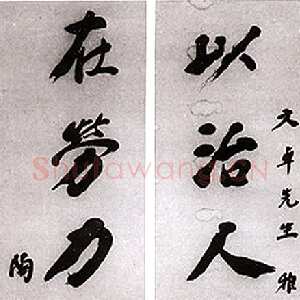 文卓先生雅
以治人
在勞力
陶
Shufawang.CN